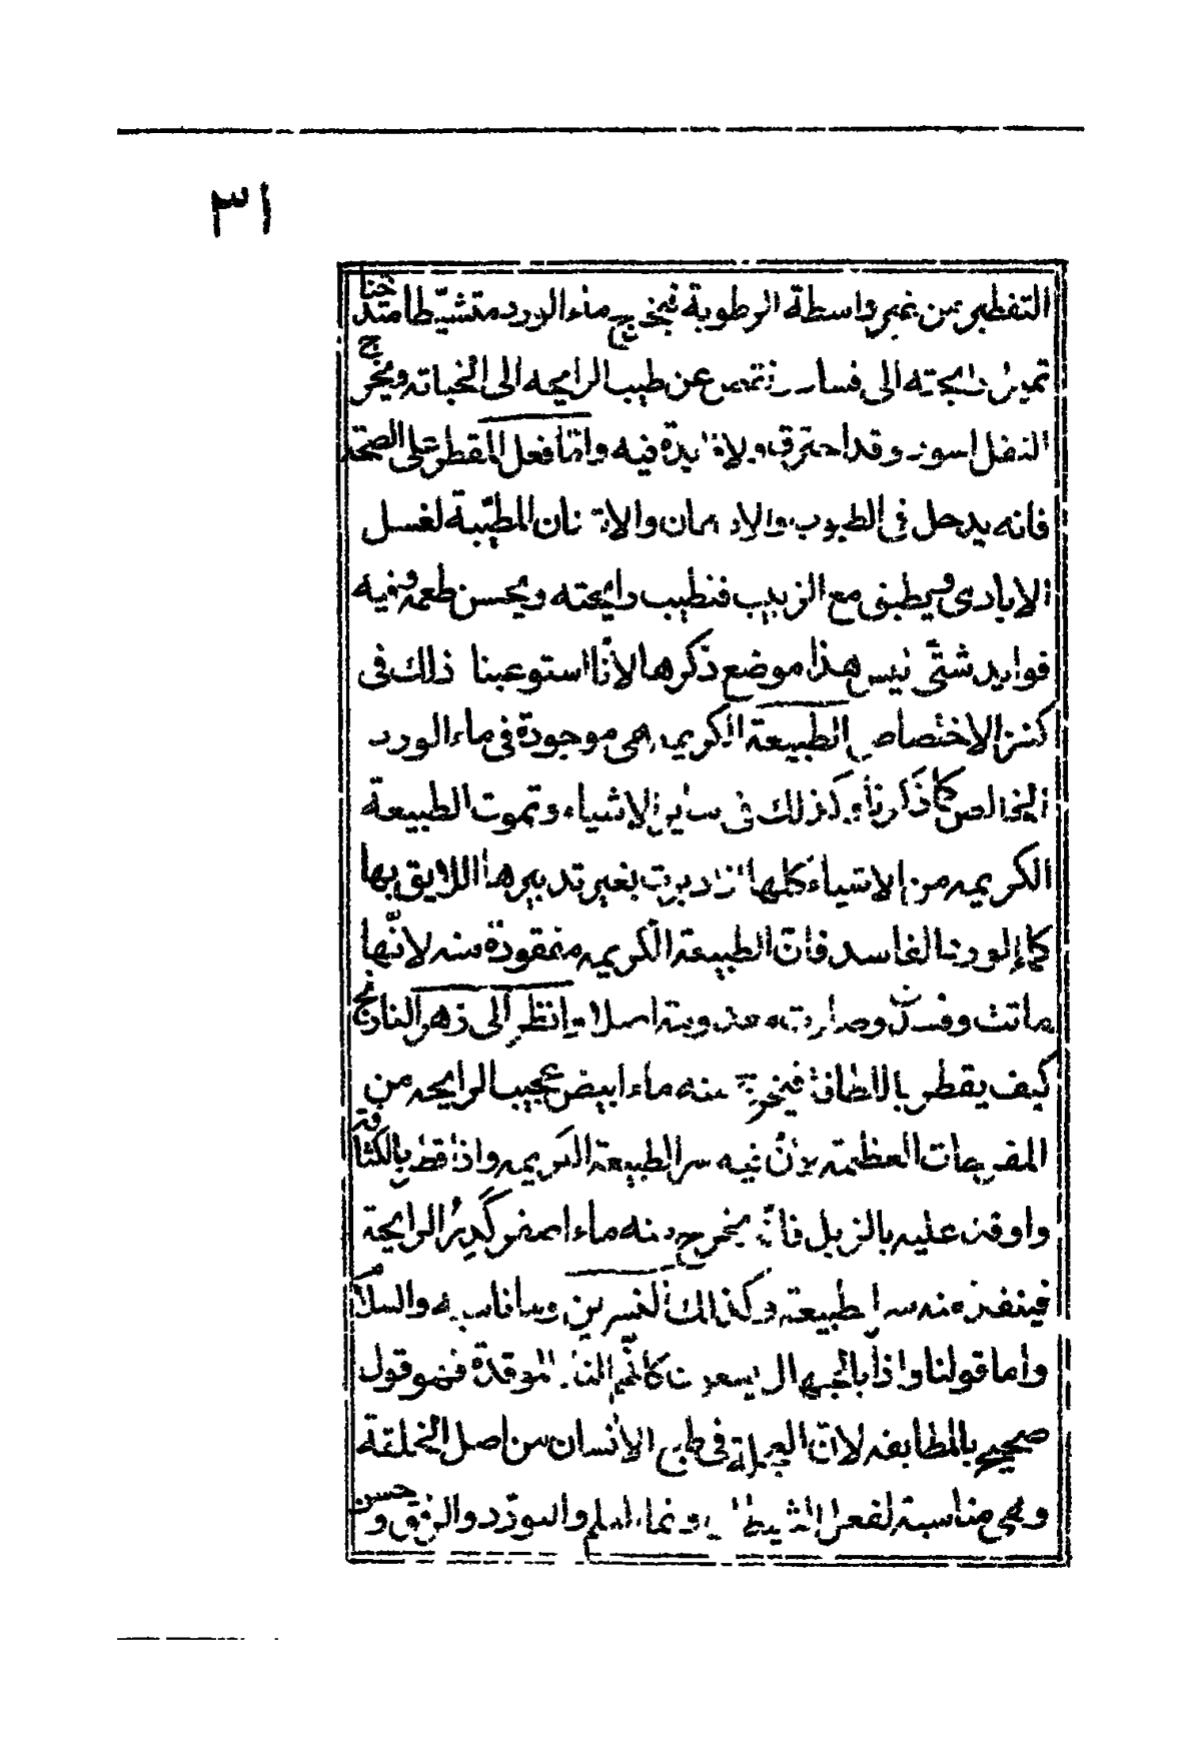 ٣١
التقطير من غير واسطة الرطوبة فيخرج ماء الورد متشيطا متدخنا
تميل رايحته الى فساد ناقص عن طيب الرايحه الى الخباثه ويخرج
الثفل اسود وقد احترق ولا فايدة فيه واما فعل المقطر على الصحة
فانه يدخل في الطيوب والادهان والاشنان المطيبة لغسل
الايادى ويطبق مع الزبيب فتطيب رايحته ويحسن طعمه وفيه
فوايد شتى ليس هذا موضع ذكرها لانا استوعبنا ذلك فى
كنز الاختصاص الطبيعة الكريمه هى موجودة فى ماء الورد
الخالص كما ذكرنا وكذلك فى ساير الاشياء وتموت الطبيعة
الكريمه من الاشياء كلها اذا دبرت بغير تدبيرها اللايق بها
كماء الورد الفاسد فان الطبيعة الكريمه مفقودة منه لانها
ماتت وفسدت وصارت معدومة اصلا وانظر الى زهر النارنج
كيف يقطر باللطافة فيخرج منه ماء ابيض عجيب الرايحه من
المفرحات العظيمه لان فيه سر الطبيعة الكريمه واذا قطر بالكثافة
واوقد عليه بالزبل فانه يخرج منه ماء اصفر كدر الرايحة
فينفد منه سر الطبيعة وكذلك النسرين وما ناسبه والسلام
واما قولنا واذا بالجهال يسعون كانهم النار الموقدة فهو قول
صحيح بالمطابقه لان العجلة فى طبع الانسان من اصل الخلقة
وهى مناسبة لفعل الشيطان وانما العلم والتودد والرفق وحسن